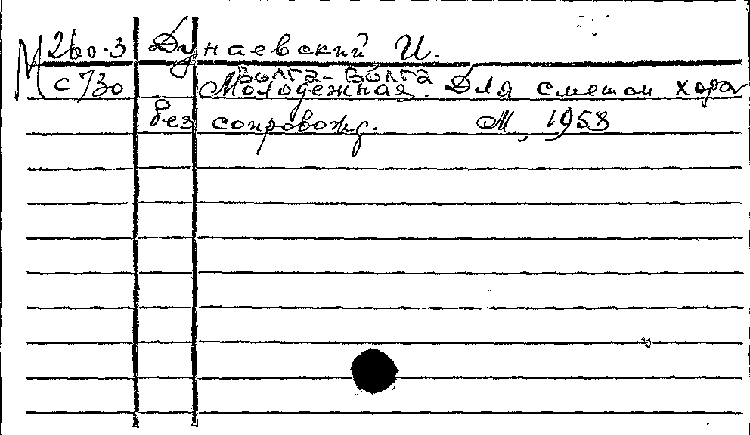 М 260.3 Дунаевский И.
Волга-Волга
с 730 Молодежная. Для смешан хора
без сопровожд. М, 1958